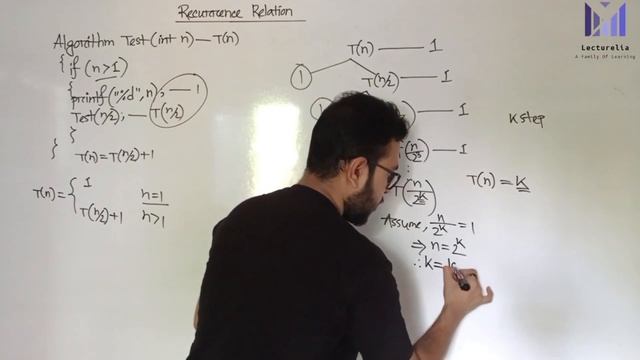 Recurrence Relation
Lecturelia
A Family Of Learning
Algorithm Test(int n) — T(n)
{ if (n>1)
{
printf("%d", n); — 1
Test(n/2); — T(n/2)
}
}
T(n) = T(n/2)+1
T(n) = { 1 n=1
T(n/2)+1 n>1
T(n) — 1
1 T(n/2) — 1
— 1
— 1
T(n/2^k)
K step
T(n) = K
Assume, n/2^k = 1
⇒ n = 2^k
∴ k =